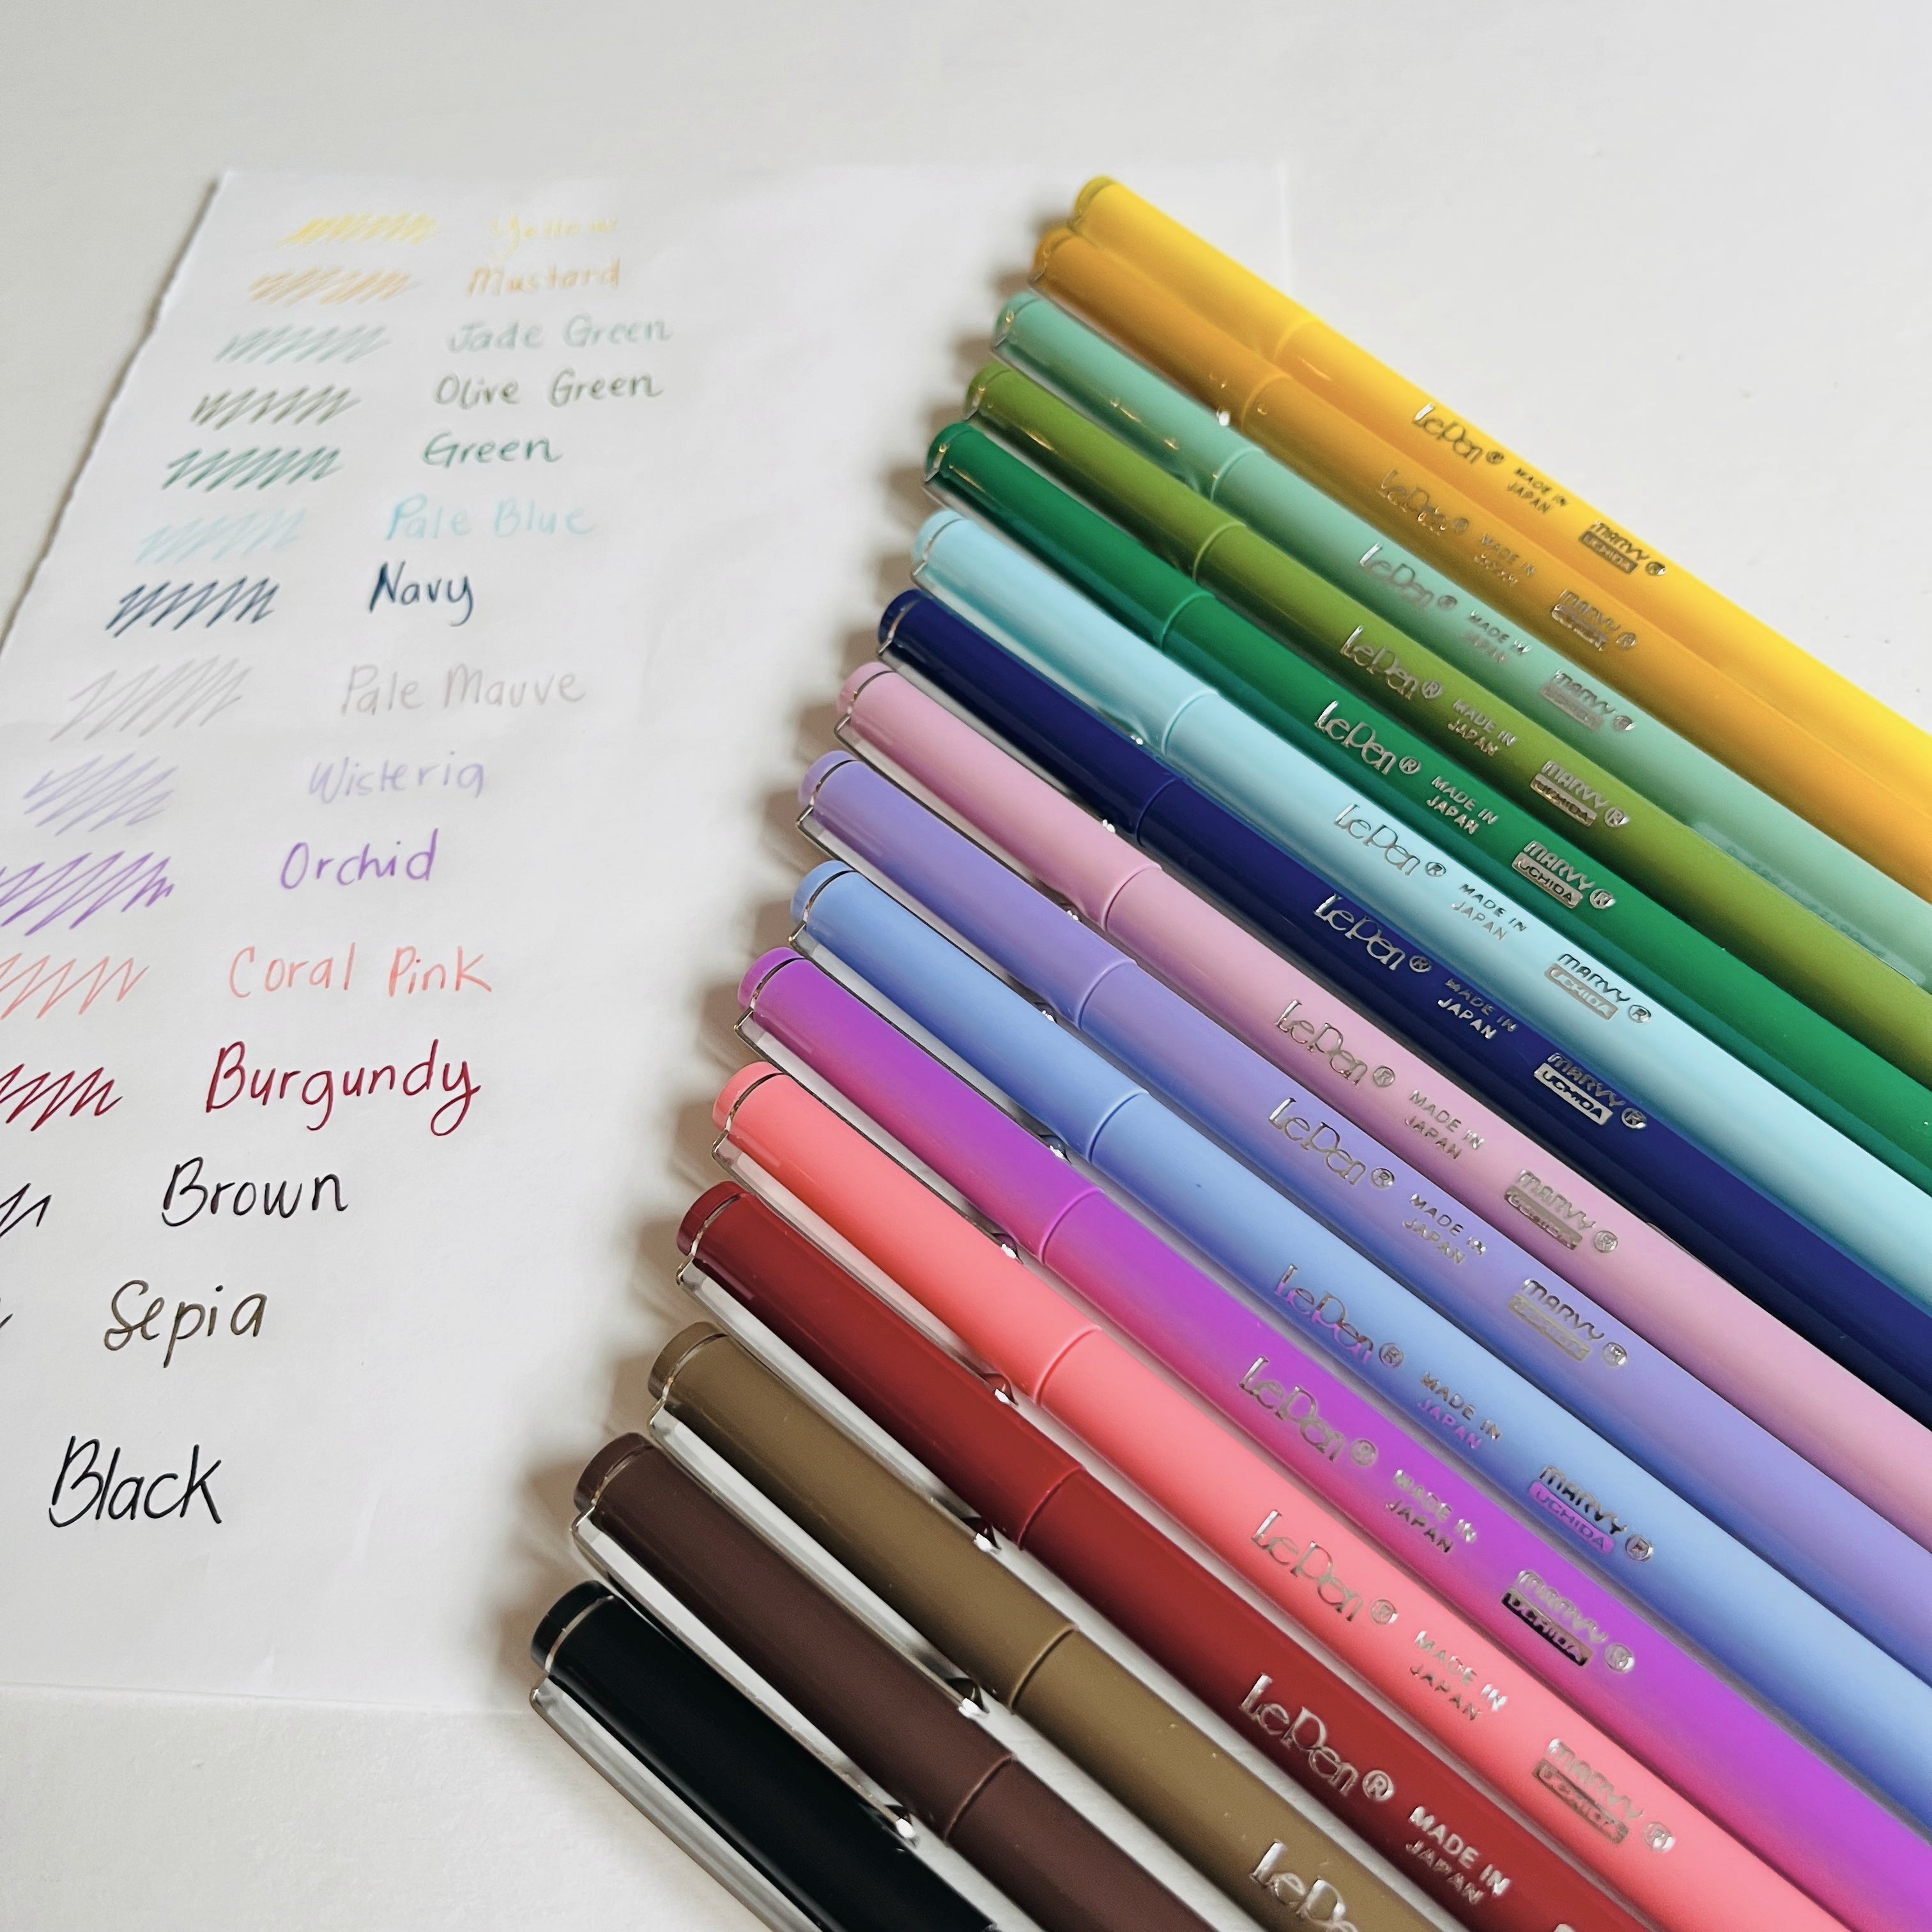 Yellow
Mustard
Jade Green
Olive Green
Green
Pale Blue
Navy
Pale Mauve
Wisteria
Orchid
Coral Pink
Burgundy
Brown
Sepia
Black
LePen® MADE IN JAPAN MARVY UCHIDA ®
LePen® MADE IN JAPAN MARVY ®
LePen® MADE IN JAPAN MARVY ®
LePen® MADE IN JAPAN MARVY UCHIDA ®
LePen® MADE IN JAPAN MARVY UCHIDA ®
LePen® MADE IN JAPAN MARVY UCHIDA ®
LePen® MADE IN JAPAN MARVY UCHIDA ®
LePen® MADE IN JAPAN MARVY ®
LePen® MADE IN JAPAN MARVY ®
LePen® MADE IN JAPAN MARVY UCHIDA ®
LePen® MADE IN JAPAN MARVY UCHIDA ®
LePen® MADE IN JAPAN MARVY UCHIDA ®
LePen® MADE IN JAPAN
LePe